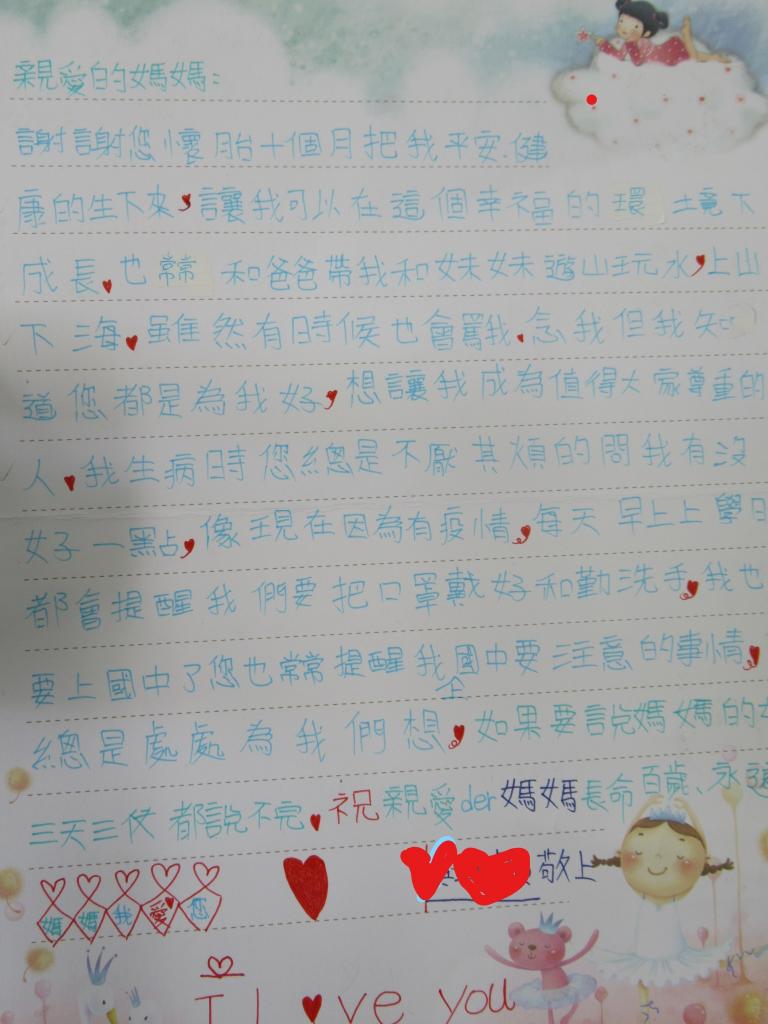 親愛的媽媽:
謝謝您懷胎十個月把我平安.健
康的生下來,讓我可以在這個幸福的環境下
成長,也常常和爸爸帶我和妹妹遊山玩水,上山
下海,雖然有時候也會罵我.念我但我知
道您都是為我好,想讓我成為值得大家尊重的
人,我生病時您總是不厭其煩的問我有沒
好一點,像現在因為有疫情,每天早上上學
都會提醒我們要把口罩戴好和勤洗手,我也
要上國中了您也常常提醒我國中要注意的事情,
總是處處為我們想,如果要說媽媽的
三天三夜都說不完,祝親愛der媽媽長命百歲、永遠
敬上
媽媽我愛您
I L♥ve you